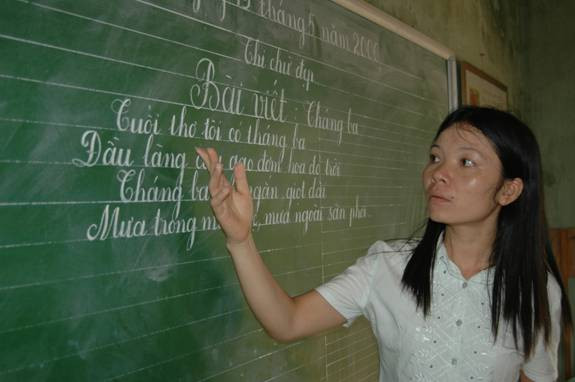 13 tháng 5 năm 2006
Thi chữ đẹp
Bài viết: Tháng ba
Tuổi thơ tôi có tháng ba
Đầu làng cây gạo đơm hoa đỏ trời
Tháng ba ngắn, giọt dài
Mưa trong mắt mẹ, mưa ngoài sân phơi.